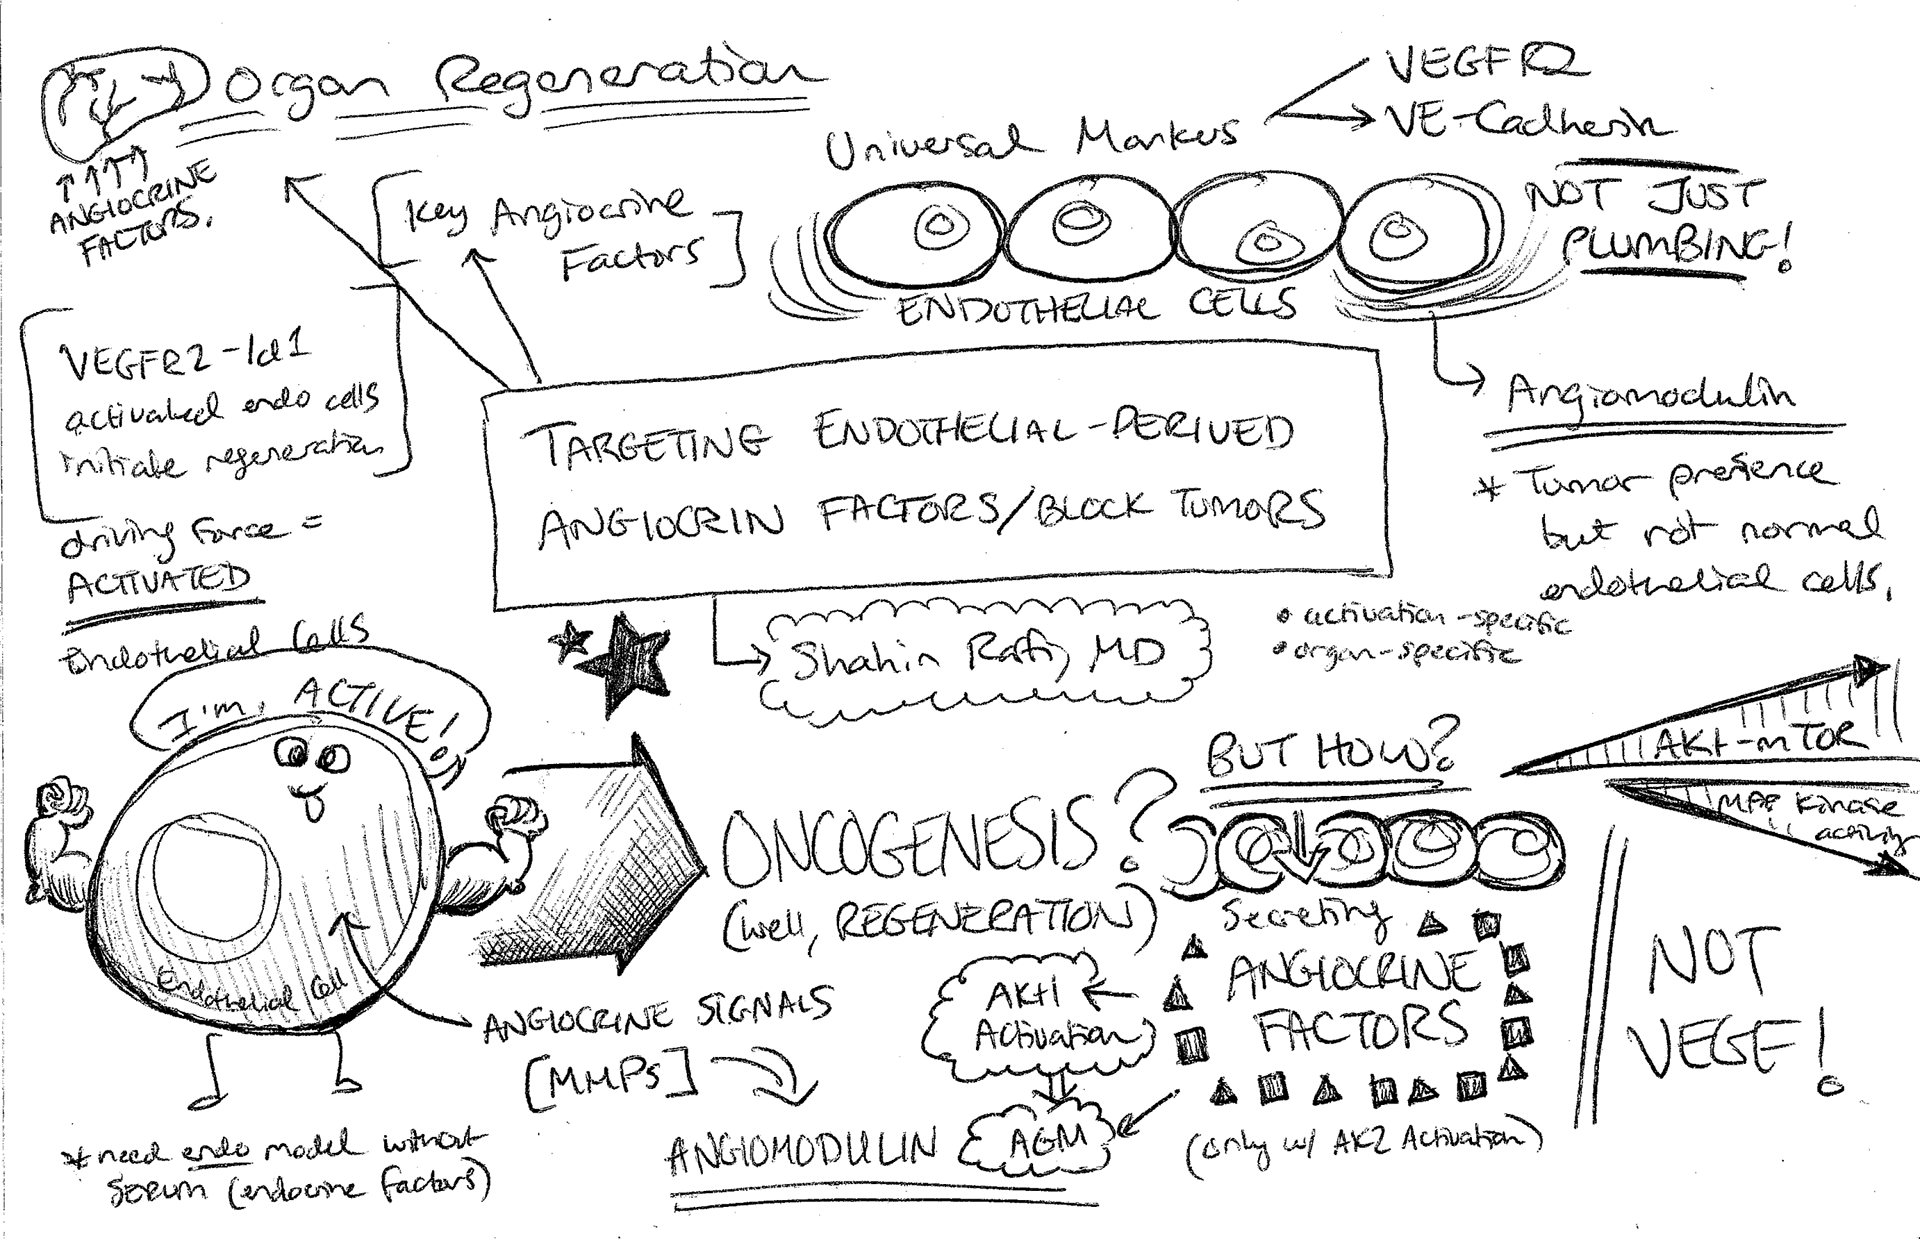 Organ Regeneration
ANGIOCRINE
FACTORS.
[Key Angiocrine
Factors]
Universal Markers
VEGFR2
VE-Cadherin
NOT JUST
PLUMBING!
ENDOTHELIAL CELLS
[VEGFR2-Id1
activated endo cells
initiate regeneration]
driving force =
ACTIVATED
Endothelial Cells
TARGETING ENDOTHELIAL-DERIVED
ANGIOCRIN FACTORS/BLOCK TUMORS
Shahin Rafii, MD
Angiomodulin
* Tumor presence
but not normal
endothelial cells.
• activation-specific
• organ-specific
I'm, ACTIVE!
Endothelial Cell
ANGIOCRINE SIGNALS
[MMPs]
* need endo model without
serum (endocrine factors)
ONCOGENESIS?
(well, REGENERATION)
BUT HOW?
AKt-mTOR
kinase
activity
Secreting
ANGIOCRINE
FACTORS
(only w/ AK2 Activation)
AKt1
Activation
ANGIOMODULIN
AGM
NOT
VEGF!